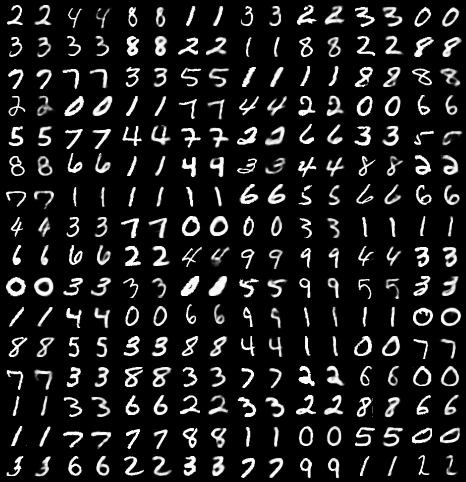 2 2 4 4 8 8 1 1 3 3 2 2 3 3 0 0
3 3 3 3 8 8 2 2 1 1 8 8 2 2 8 8
7 7 7 7 3 3 5 5 1 1 1 1 8 8 8 8
2 2 0 0 1 1 7 7 4 4 2 2 0 0 6 6
5 5 7 7 4 4 7 7 2 2 6 6 3 3 5 5
8 8 6 6 1 1 4 4 3 3 4 4 8 8 2 2
7 7 1 1 1 1 1 1 6 6 5 5 6 6 6 6
4 4 3 3 7 7 0 0 0 0 3 3 1 1 1 1
6 6 6 6 2 2 4 4 9 9 9 9 4 4 3 3
0 0 3 3 3 3 0 0 5 5 9 9 5 5 3 3
1 1 4 4 0 0 6 6 9 9 1 1 1 1 0 0
8 8 5 5 3 3 8 8 4 4 1 1 0 0 7 7
7 7 3 3 8 8 3 3 7 7 2 2 6 6 0 0
1 1 3 3 6 6 2 2 3 3 2 2 8 8 6 6
1 1 7 7 7 7 8 8 1 1 0 0 5 5 0 0
3 3 6 6 2 2 3 3 7 7 9 9 1 1 2 2